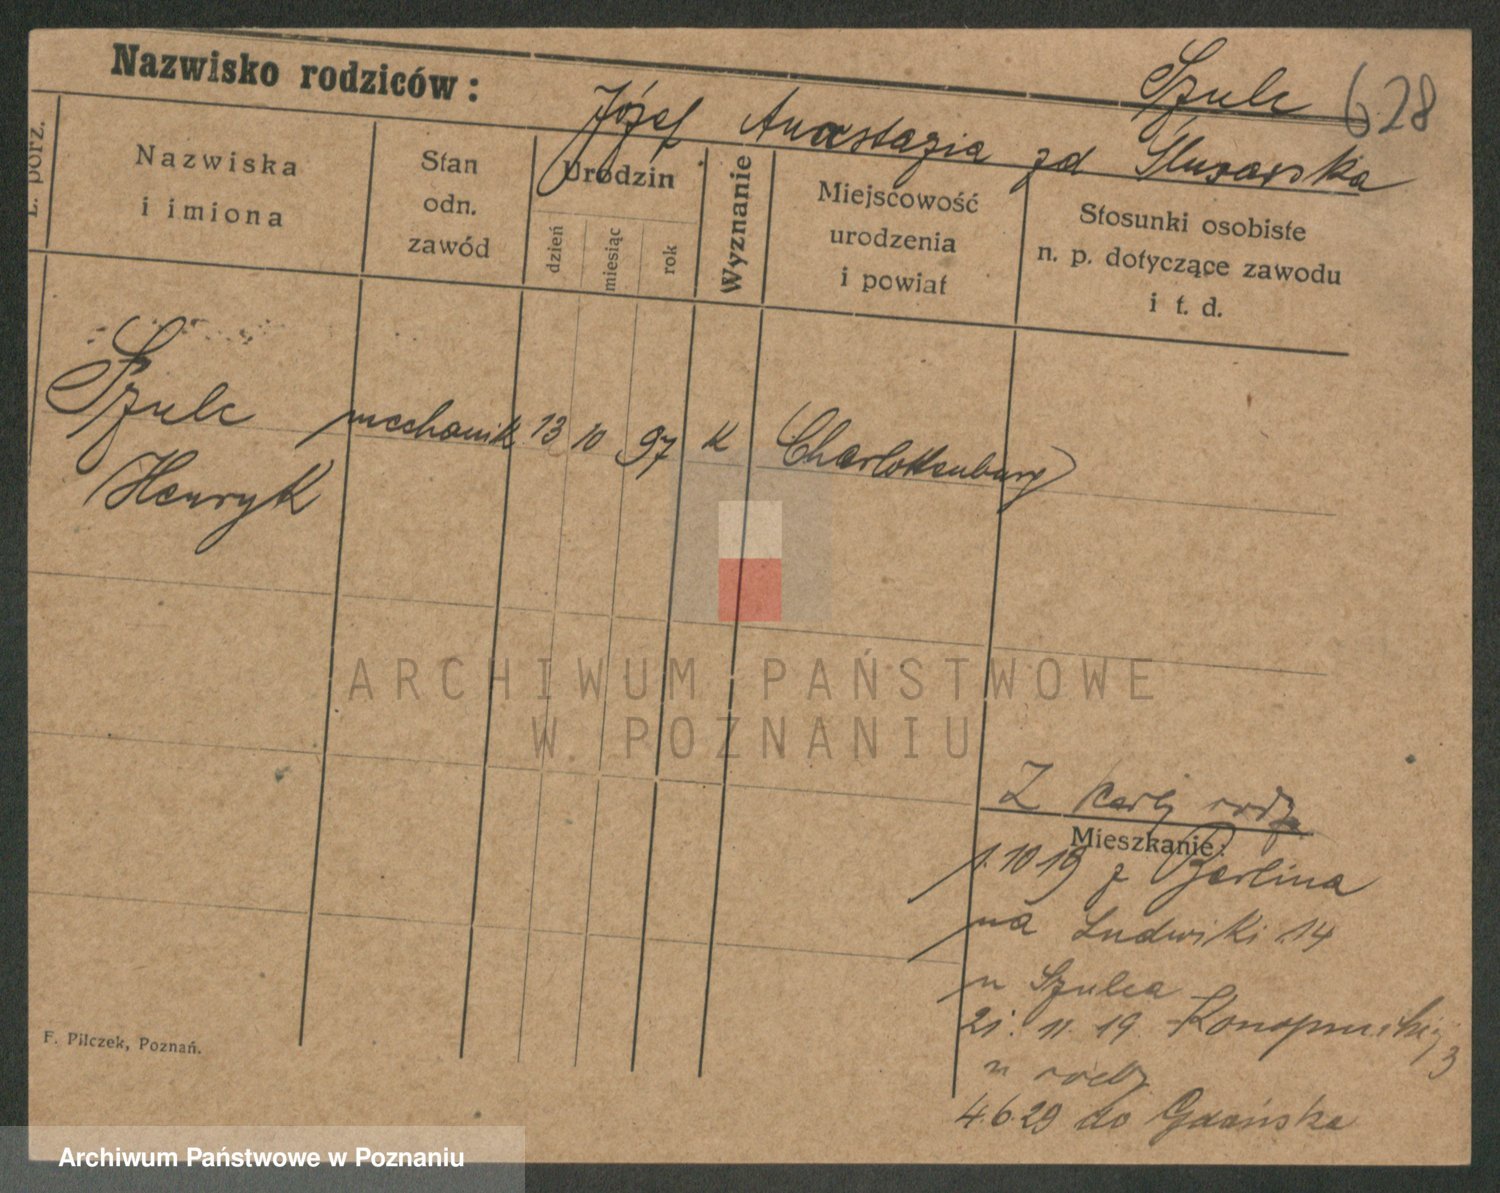 Szulc 628
Nazwisko rodziców: Józef Anastazja zd
L. porz.
Nazwiska
i imiona
Stan
odn.
zawód
Urodzin
dzień
miesiąc
rok
Wyznanie
Miejscowość
urodzenia
i powiat
Stosunki osobiste
n. p. dotyczące zawodu
i t. d.
Szulc mechanik 13 10 97 K Charlottenburg
Henryk
ARCHIWUM PAŃSTWOWE
W POZNANIU
Z karty rodz
Mieszkanie:
1.10 19 z Berlina
na Ludwiki 14
u Szulca
21. 11. 19. Konopnickiej 3
u rodz
4.6.29 do Gdańska
F. Pilczek, Poznań.
Archiwum Państwowe w Poznaniu